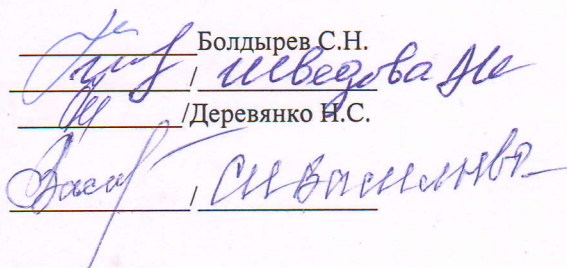 Болдырев С.Н.
/ Шведова
/Деревянко Н.С.
/ С.И. Васильева